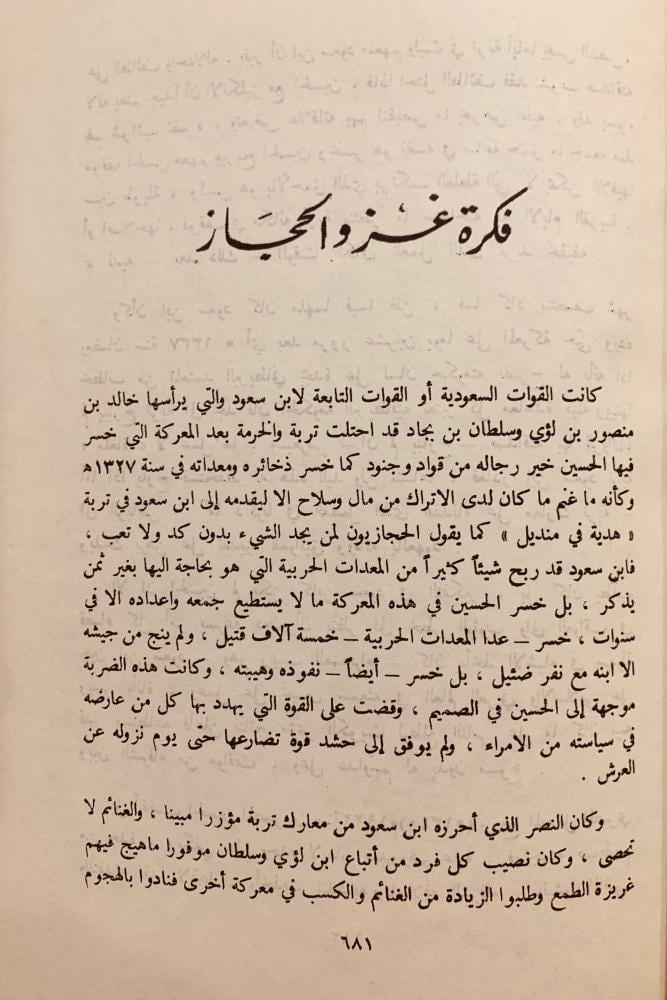 فكرة غزو الحجاز
كانت القوات السعودية أو القوات التابعة لابن سعود والتي يرأسها خالد بن
منصور بن لؤي وسلطان بن بجاد قد احتلت تربة والخرمة بعد المعركة التي خسر
فيها الحسين خير رجاله من قواد وجنود كما خسر ذخائره ومعداته في سنة ١٣٢٧ﻫ
وكأنه ما غنم ما كان لدى الاتراك من مال وسلاح الا ليقدمه إلى ابن سعود في تربة
« هدية في منديل » كما يقول الحجازيون لمن يجد الشيء بدون كد ولا تعب ،
فابن سعود قد ربح شيئاً كثيراً من المعدات الحربية التي هو بحاجة اليها بغير ثمن
يذكر ، بل خسر الحسين في هذه المعركة ما لا يستطيع جمعه واعداده الا في
سنوات ، خسر ــ عدا المعدات الحربية ــ خمسة آلاف قتيل ، ولم ينج من جيشه
الا ابنه مع نفر ضئيل ، بل خسر ــ أيضاً ــ نفوذه وهيبته ، وكانت هذه الضربة
موجهة إلى الحسين في الصميم ، وقضت على القوة التي يهدد بها كل من عارضه
في سياسته من الامراء ، ولم يوفق إلى حشد قوة تضارعها حتى يوم نزوله عن
العرش .
وكان النصر الذي أحرزه ابن سعود من معارك تربة مؤزرا مبينا ، والغنائم لا
تحصى ، وكان نصيب كل فرد من أتباع ابن لؤي وسلطان موفورا ماهيج فيهم
غريزة الطمع وطلبوا الزيادة من الغنائم والكسب في معركة أخرى فنادوا بالهجوم
٦٨١